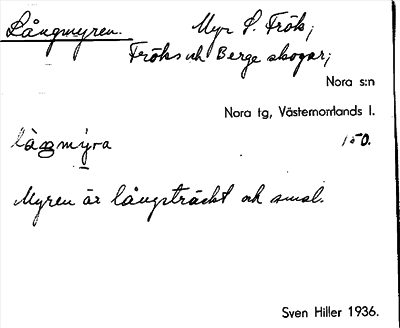 Långmyren. Myr S. Frök;
Fröks och Berge skogar;
Nora s:n
Nora tg, Västernorrlands l.
150.
Myren är långsträckt och smal.
Sven Hiller 1936.